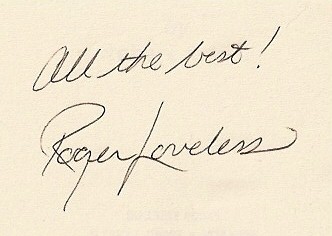 All the best!
Roger Loveless